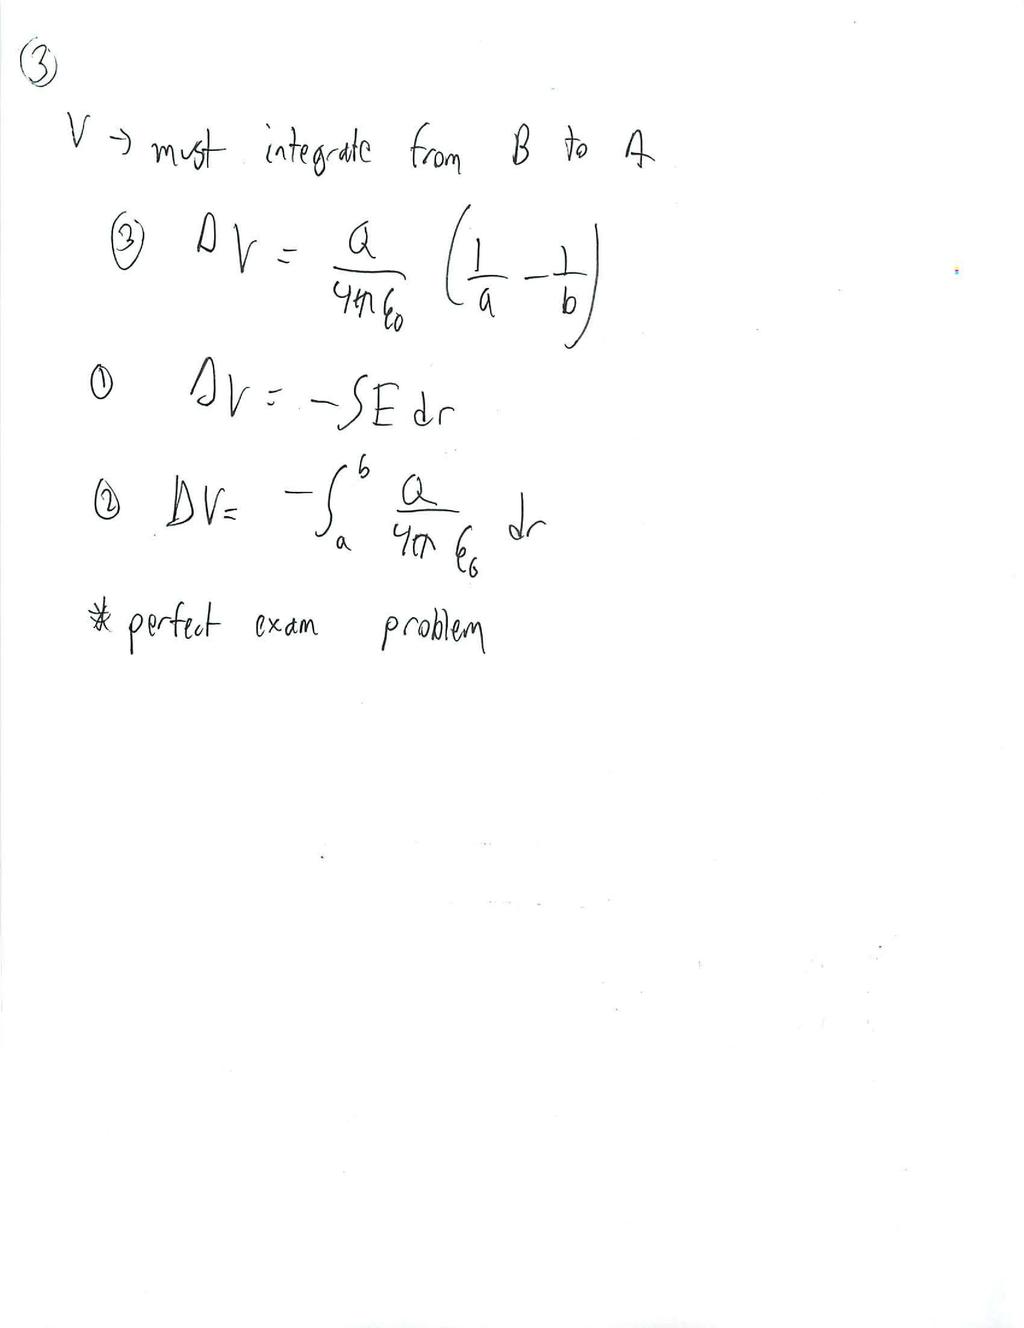 ③
V → must integrate from B to A
③ ΔV = Q/4πε₀ (1/a - 1/b)
① ΔV = -∫E dr
② ΔV = -∫ₐᵇ Q/4πε₀ dr
* perfect exam problem